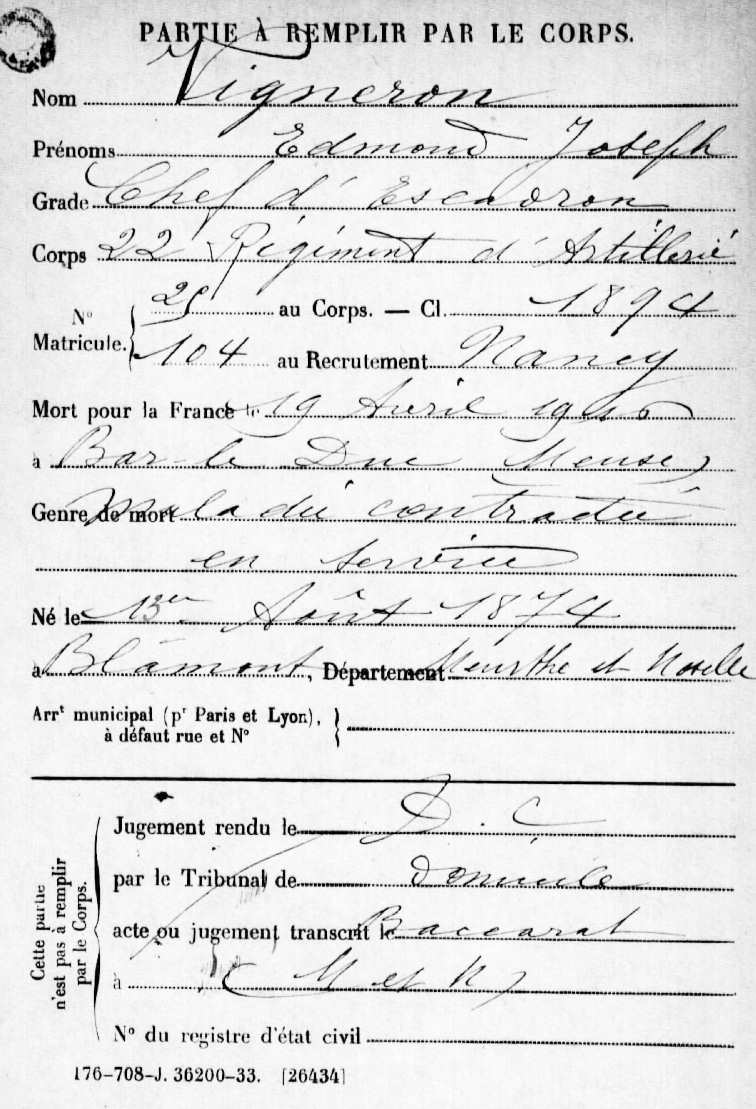 PARTIE À REMPLIR PAR LE CORPS.
Nom Vigneron
Prénoms Edmond Joseph
Grade Chef d'Escadron
Corps 22 Régiment d'Artillerie
N° Matricule. { au Corps. — Cl. 1894
104 au Recrutement Nancy
Mort pour la France le 19 Avril
à Bar-le Duc (Meuse)
Genre de mort maladie contractée
en service
Né le 13 Août 1874
à Blâmont, Département Meurthe et Moselle
Arrt municipal (pr Paris et Lyon),
à défaut rue et N°
Cette partie n'est pas à remplir par le Corps.
Jugement rendu le D. C
par le Tribunal de Domicile
acte ou jugement transcrit le Baccarat
à (M et M)
N° du registre d'état civil
176-708-J. 36200-33. [26434]